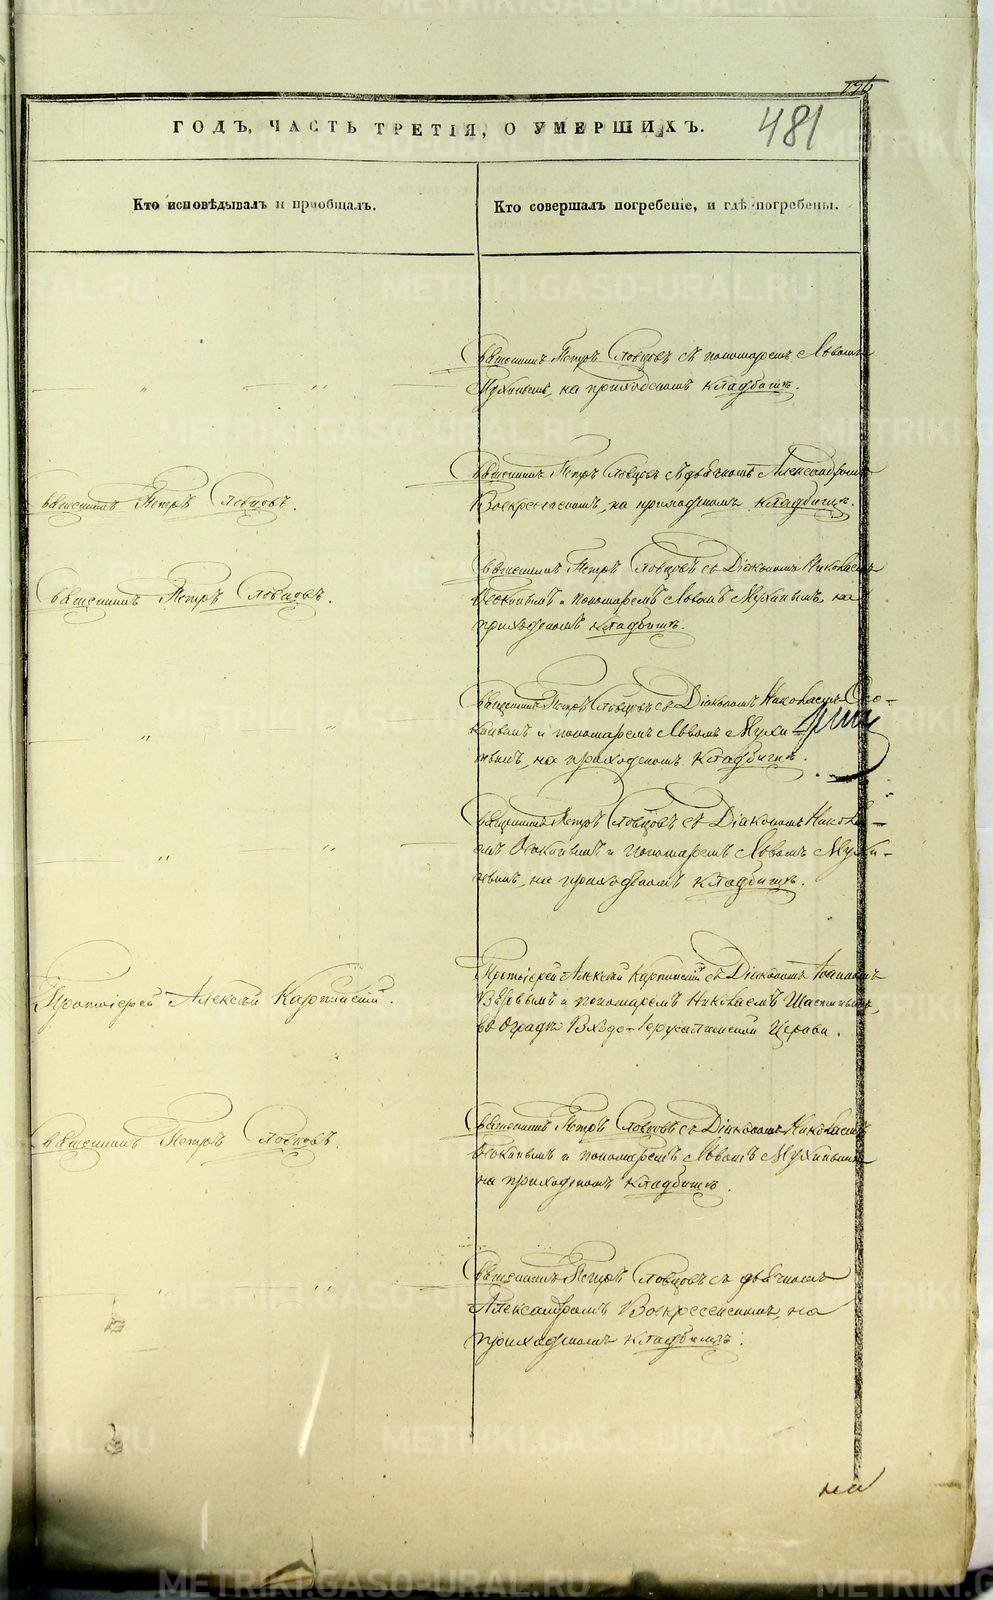 481
ГОДЪ, ЧАСТЬ ТРЕТІЯ, О УМЕРШИХЪ.
Кто исповѣдывалъ и пріобщалъ.
Кто совершалъ погребеніе, и гдѣ погребены.
Священникъ Петръ Словцовъ съ пономаремъ Львомъ
Мухинымъ, на приходскомъ кладбищѣ.
Священникъ Петръ Словцовъ.
Священникъ Петръ Словцовъ съ дьячкомъ Александромъ
Воскресенскимъ, на приходскомъ кладбищѣ.
Священникъ Петръ Словцовъ.
Священникъ Петръ Словцовъ съ Діакономъ Николаемъ
и пономаремъ Львомъ Мухинымъ, на
приходскомъ кладбищѣ.
Священникъ Петръ Словцовъ съ Діакономъ Николаемъ
и пономаремъ Львомъ Мухи-
нымъ, на приходскомъ кладбищѣ.
Священникъ Петръ Словцовъ съ Діакономъ Никола-
емъ и пономаремъ Львомъ Мухи-
нымъ, на приходскомъ кладбищѣ.
Протоіерей Алексѣй Карпинскій.
Протоіерей Алексѣй Карпинскій съ Діакономъ Іоанномъ
и пономаремъ Николаемъ
въ оградѣ Входо-Іерусалимской Церкви.
Священникъ Петръ Словцовъ.
Священникъ Петръ Словцовъ съ Діакономъ Николаемъ
и пономаремъ Львомъ Мухинымъ
на приходскомъ кладбищѣ.
Священникъ Петръ Словцовъ съ дьячкомъ
Александромъ Воскресенскимъ, на
приходскомъ кладбищѣ.
METRIKI.GASO-URAL.RU